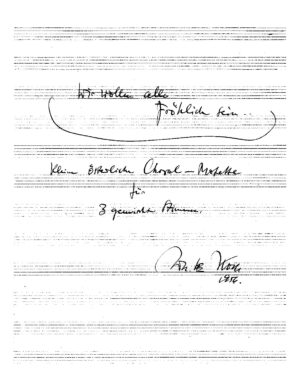 Wir wollen alle
Fröhlich sein..
Kleine österliche Choral-Motette
für
3 gemischte Stimmen.